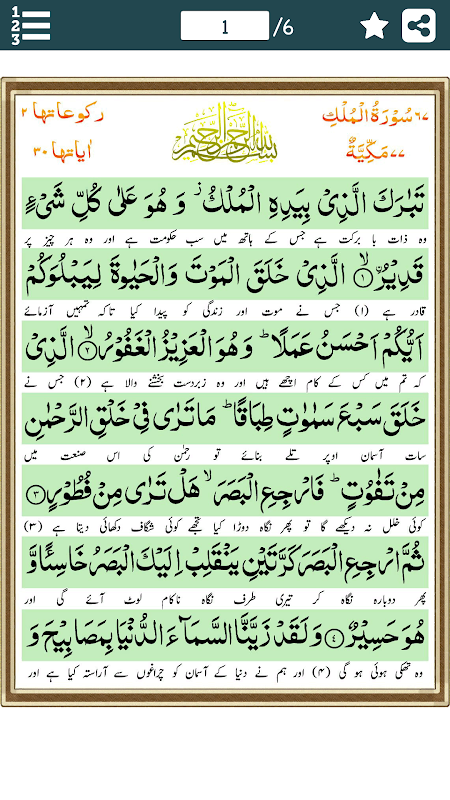 1
2
3
1 /6
۶۷ سُوْرَةُ الْمُلْكِ
رکوعاتها ۲
بسم الله الرحمن الرحيم
۷۷ مَكِّيَّةٌ
اٰیاتها ۳۰
تَبٰرَكَ الَّذِیْ بِیَدِهِ الْمُلْكُ ؗ وَ هُوَ عَلٰى كُلِّ شَیْءٍ
وہ ذات با برکت ہے جس کے ہاتھ میں سب حکومت ہے اور وہ ہر چیز پر
قَدِیْرُ ۙ﴿۱﴾ الَّذِیْ خَلَقَ الْمَوْتَ وَالْحَیٰوةَ لِیَبْلُوَكُمْ
قادر ہے (۱) جس نے موت اور زندگی کو پیدا کیا تاکہ تمہیں آزمائے
اَیُّكُمْ اَحْسَنُ عَمَلًا ؕ وَ هُوَ الْعَزِیْزُ الْغَفُوْرُ ۙ﴿۲﴾ الَّذِیْ
کہ تم میں کس کے کام اچھے ہیں اور وہ زبردست بخشنے والا ہے (۲) جس نے
خَلَقَ سَبْعَ سَمٰوٰتٍ طِبَاقًا ؕ مَا تَرٰى فِیْ خَلْقِ الرَّحْمٰنِ
سات آسمان اوپر تلے بنائے تو رحمٰن کی اس صنعت میں
مِنْ تَفٰوُتٍ ؕ فَارْجِعِ الْبَصَرَ ۙ هَلْ تَرٰى مِنْ فُطُوْرٍ ﴿۳﴾
کوئی خلل نہ دیکھے گا تو پھر نگاہ دوڑا کیا تجھے کوئی شگاف دکھائی دیتا ہے (۳)
ثُمَّ ارْجِعِ الْبَصَرَ كَرَّتَیْنِ یَنْقَلِبْ اِلَیْكَ الْبَصَرُ خَاسِئًا وَّ
پھر دوبارہ نگاہ کر تیری طرف نگاہ ناکام لوٹ آئے گی اور
هُوَ حَسِیْرٌ ﴿۴﴾ وَ لَقَدْ زَیَّنَّا السَّمَآءَ الدُّنْیَا بِمَصَابِیْحَ وَ
وہ تھکی ہوئی ہو گی (۴) اور ہم نے دنیا کے آسمان کو چراغوں سے آراستہ کیا ہے اور